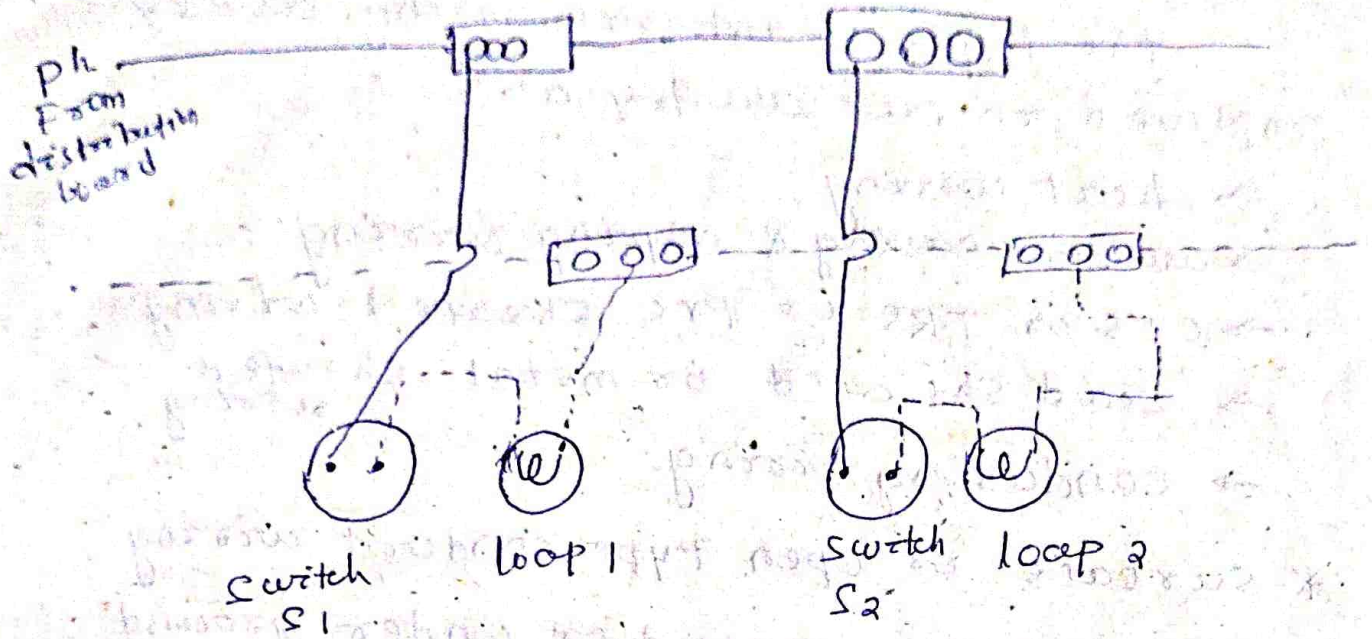 ph
From
distribution
board
switch
S1
loop 1
switch
S2
loop 2